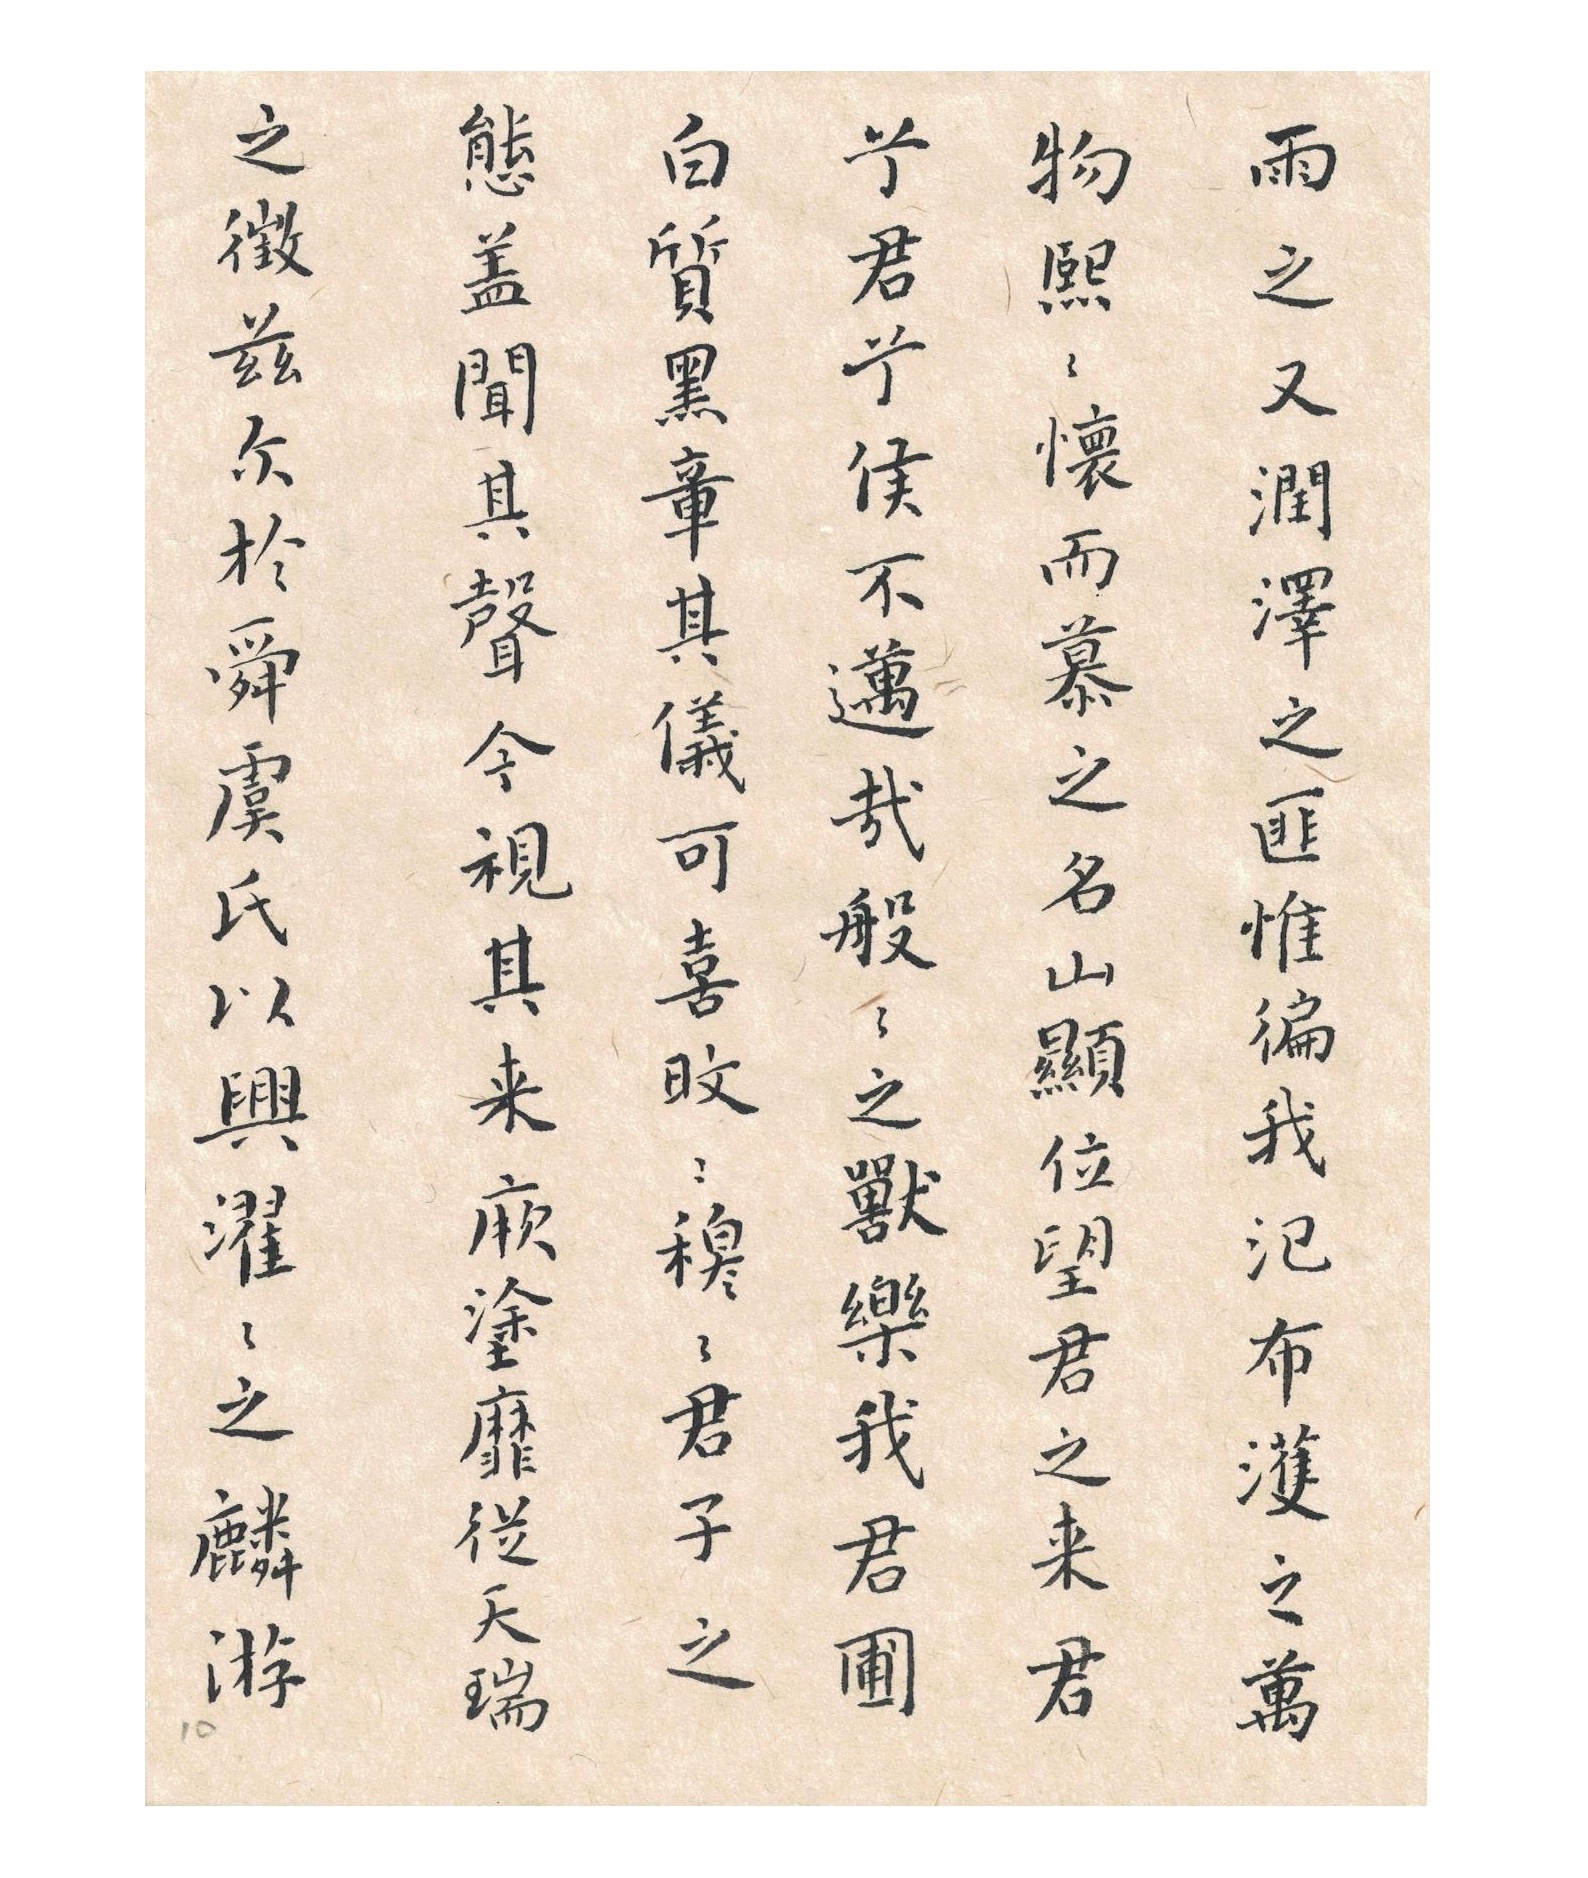 雨之又潤澤之匪惟徧我氾布濩之萬
物熙〻懷而慕之名山顯位望君之来君
兮君兮侯不邁哉般〻之獸樂我君圃
白質黑章其儀可喜旼〻穆〻君子之
態盖聞其聲今視其来厥塗靡從天瑞
之徴兹尓於舜虞氏以興濯〻之麟游
10